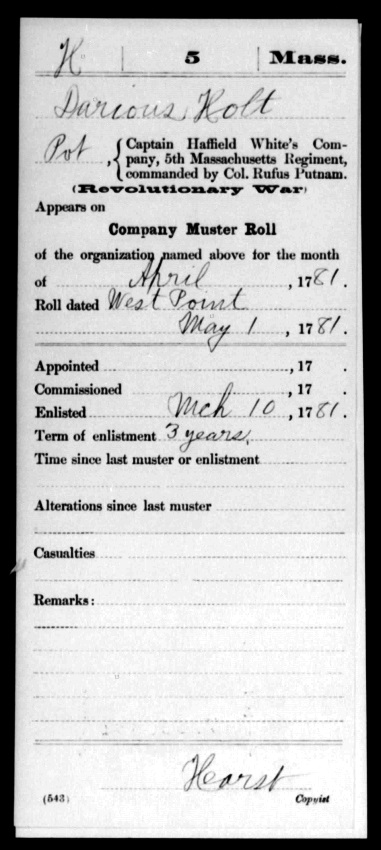 H 5 Mass.
Darious Holt
Pvt, { Captain Haffield White's Com-
pany, 5th Massachusetts Regiment,
commanded by Col. Rufus Putnam.
(Revolutionary War)
Appears on
Company Muster Roll
of the organization named above for the month
of April, 1781.
Roll dated West Point
May 1, 1781.
Appointed , 17 .
Commissioned , 17 .
Enlisted Mch 10, 1781.
Term of enlistment 3 years.
Time since last muster or enlistment
Alterations since last muster
Casualties
Remarks:
Horst
(543) Copyist